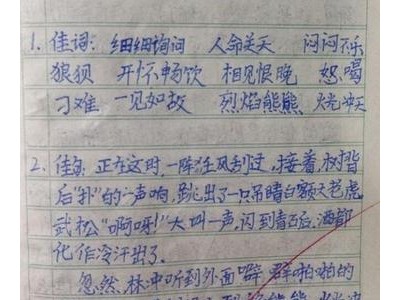 1. 佳词: 细细询问 人命关天 闷闷不乐
狼狈 开怀畅饮 相见恨晚 怒喝
刁难 一见如故 烈焰熊熊 火光冲天
2. 佳句: 正在这时,一阵狂风刮过,接着,树背
后"扑"的一声响,跳出了一只吊睛白额大老虎
武松"啊呀!"大叫一声,闪到青石后,酒都
化作冷汗出了.
忽然,林冲听到外面噼噼啪啪的